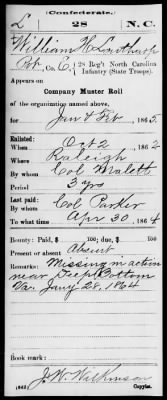 (Confederate.)
L 28 N.C.
William H.
Pvt, Co. E, 28 Reg't North Carolina
Infantry (State Troops).
Appears on
Company Muster Roll
of the organization named above,
for Jan & Feb, 1865.
Enlisted:
When Oct 2, 1862
Where Raleigh
By whom Col Mallett
Period 3 yrs
Last paid:
By whom Col Parker
To what time Apr 30, 1864
Bounty: Paid, $ 100; due, $ 100
Present or absent Absent
Remarks: Missing in action
near Deep Bottom
Va. 28, 1864
Book mark:
J. W. Wilkinson
(642) Copyist.